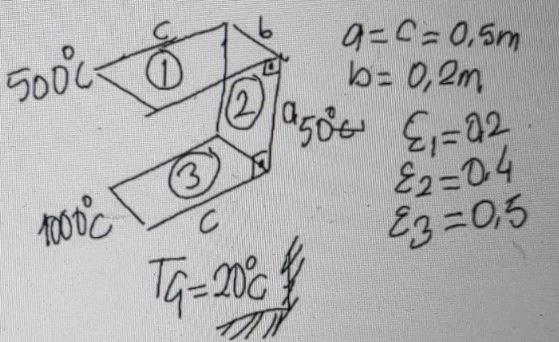 c b
500°C ① ② a 50°C
1000°C ③ c
a=c=0,5m
b=0,2m
ε₁=0.2
ε₂=0.4
ε₃=0,5
T_G=20°C